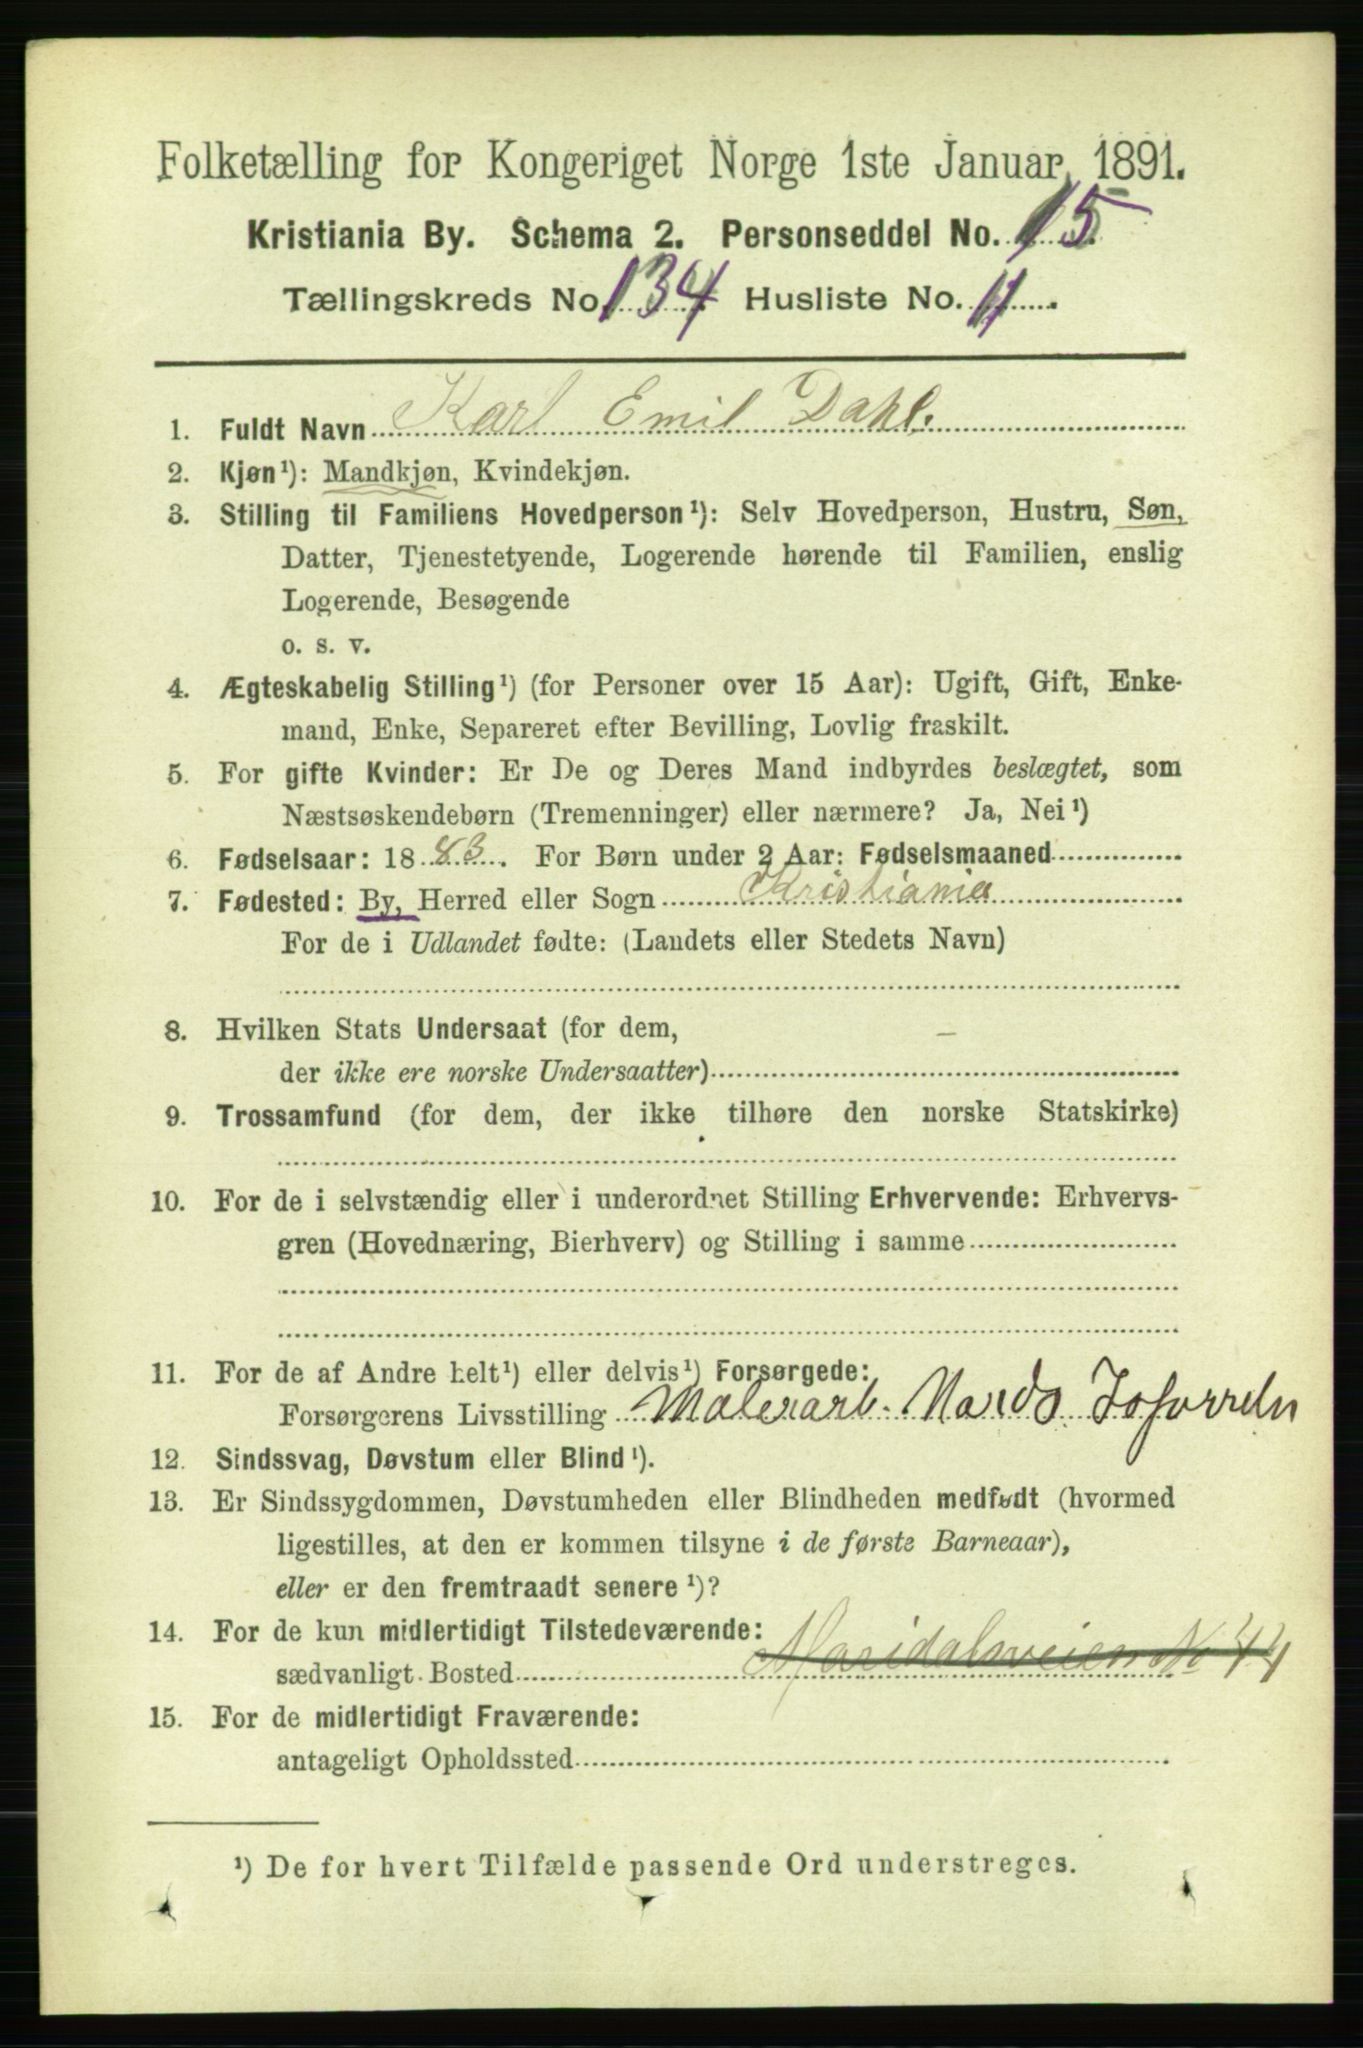 Folketælling for Kongeriget Norge 1ste Januar 1891.
Kristiania By. Schema 2. Personseddel No. 15.
Tællingskreds No. 134 Husliste No. 11.
1. Fuldt Navn Karl Emil Dahl.
2. Kjøn¹): Mandkjøn, Kvindekjøn.
3. Stilling til Familiens Hovedperson¹): Selv Hovedperson, Hustru, Søn,
Datter, Tjenestetyende, Logerende hørende til Familien, enslig
Logerende, Besøgende
o. s. v.
4. Ægteskabelig Stilling¹) (for Personer over 15 Aar): Ugift, Gift, Enke-
mand, Enke, Separeret efter Bevilling, Lovlig fraskilt.
5. For gifte Kvinder: Er De og Deres Mand indbyrdes beslægtet, som
Næstsøskendebørn (Tremenninger) eller nærmere? Ja, Nei¹)
6. Fødselsaar: 1883. For Børn under 2 Aar: Fødselsmaaned
7. Fødested: By, Herred eller Sogn Kristiania
For de i Udlandet fødte: (Landets eller Stedets Navn)
8. Hvilken Stats Undersaat (for dem,
der ikke ere norske Undersaatter)
9. Trossamfund (for dem, der ikke tilhøre den norske Statskirke)
10. For de i selvstændig eller i underordnet Stilling Erhvervende: Erhvervs-
gren (Hovednæring, Bierhverv) og Stilling i samme
11. For de af Andre helt¹) eller delvis¹) Forsørgede:
Forsørgerens Livsstilling Malerarb.
12. Sindssvag, Døvstum eller Blind¹).
13. Er Sindssygdommen, Døvstumheden eller Blindheden medfødt (hvormed
ligestilles, at den er kommen tilsyne i de første Barneaar),
eller er den fremtraadt senere¹)?
14. For de kun midlertidigt Tilstedeværende:
sædvanligt Bosted Maridalsveien No 44
15. For de midlertidigt Fraværende:
antageligt Opholdssted
¹) De for hvert Tilfælde passende Ord understreges.